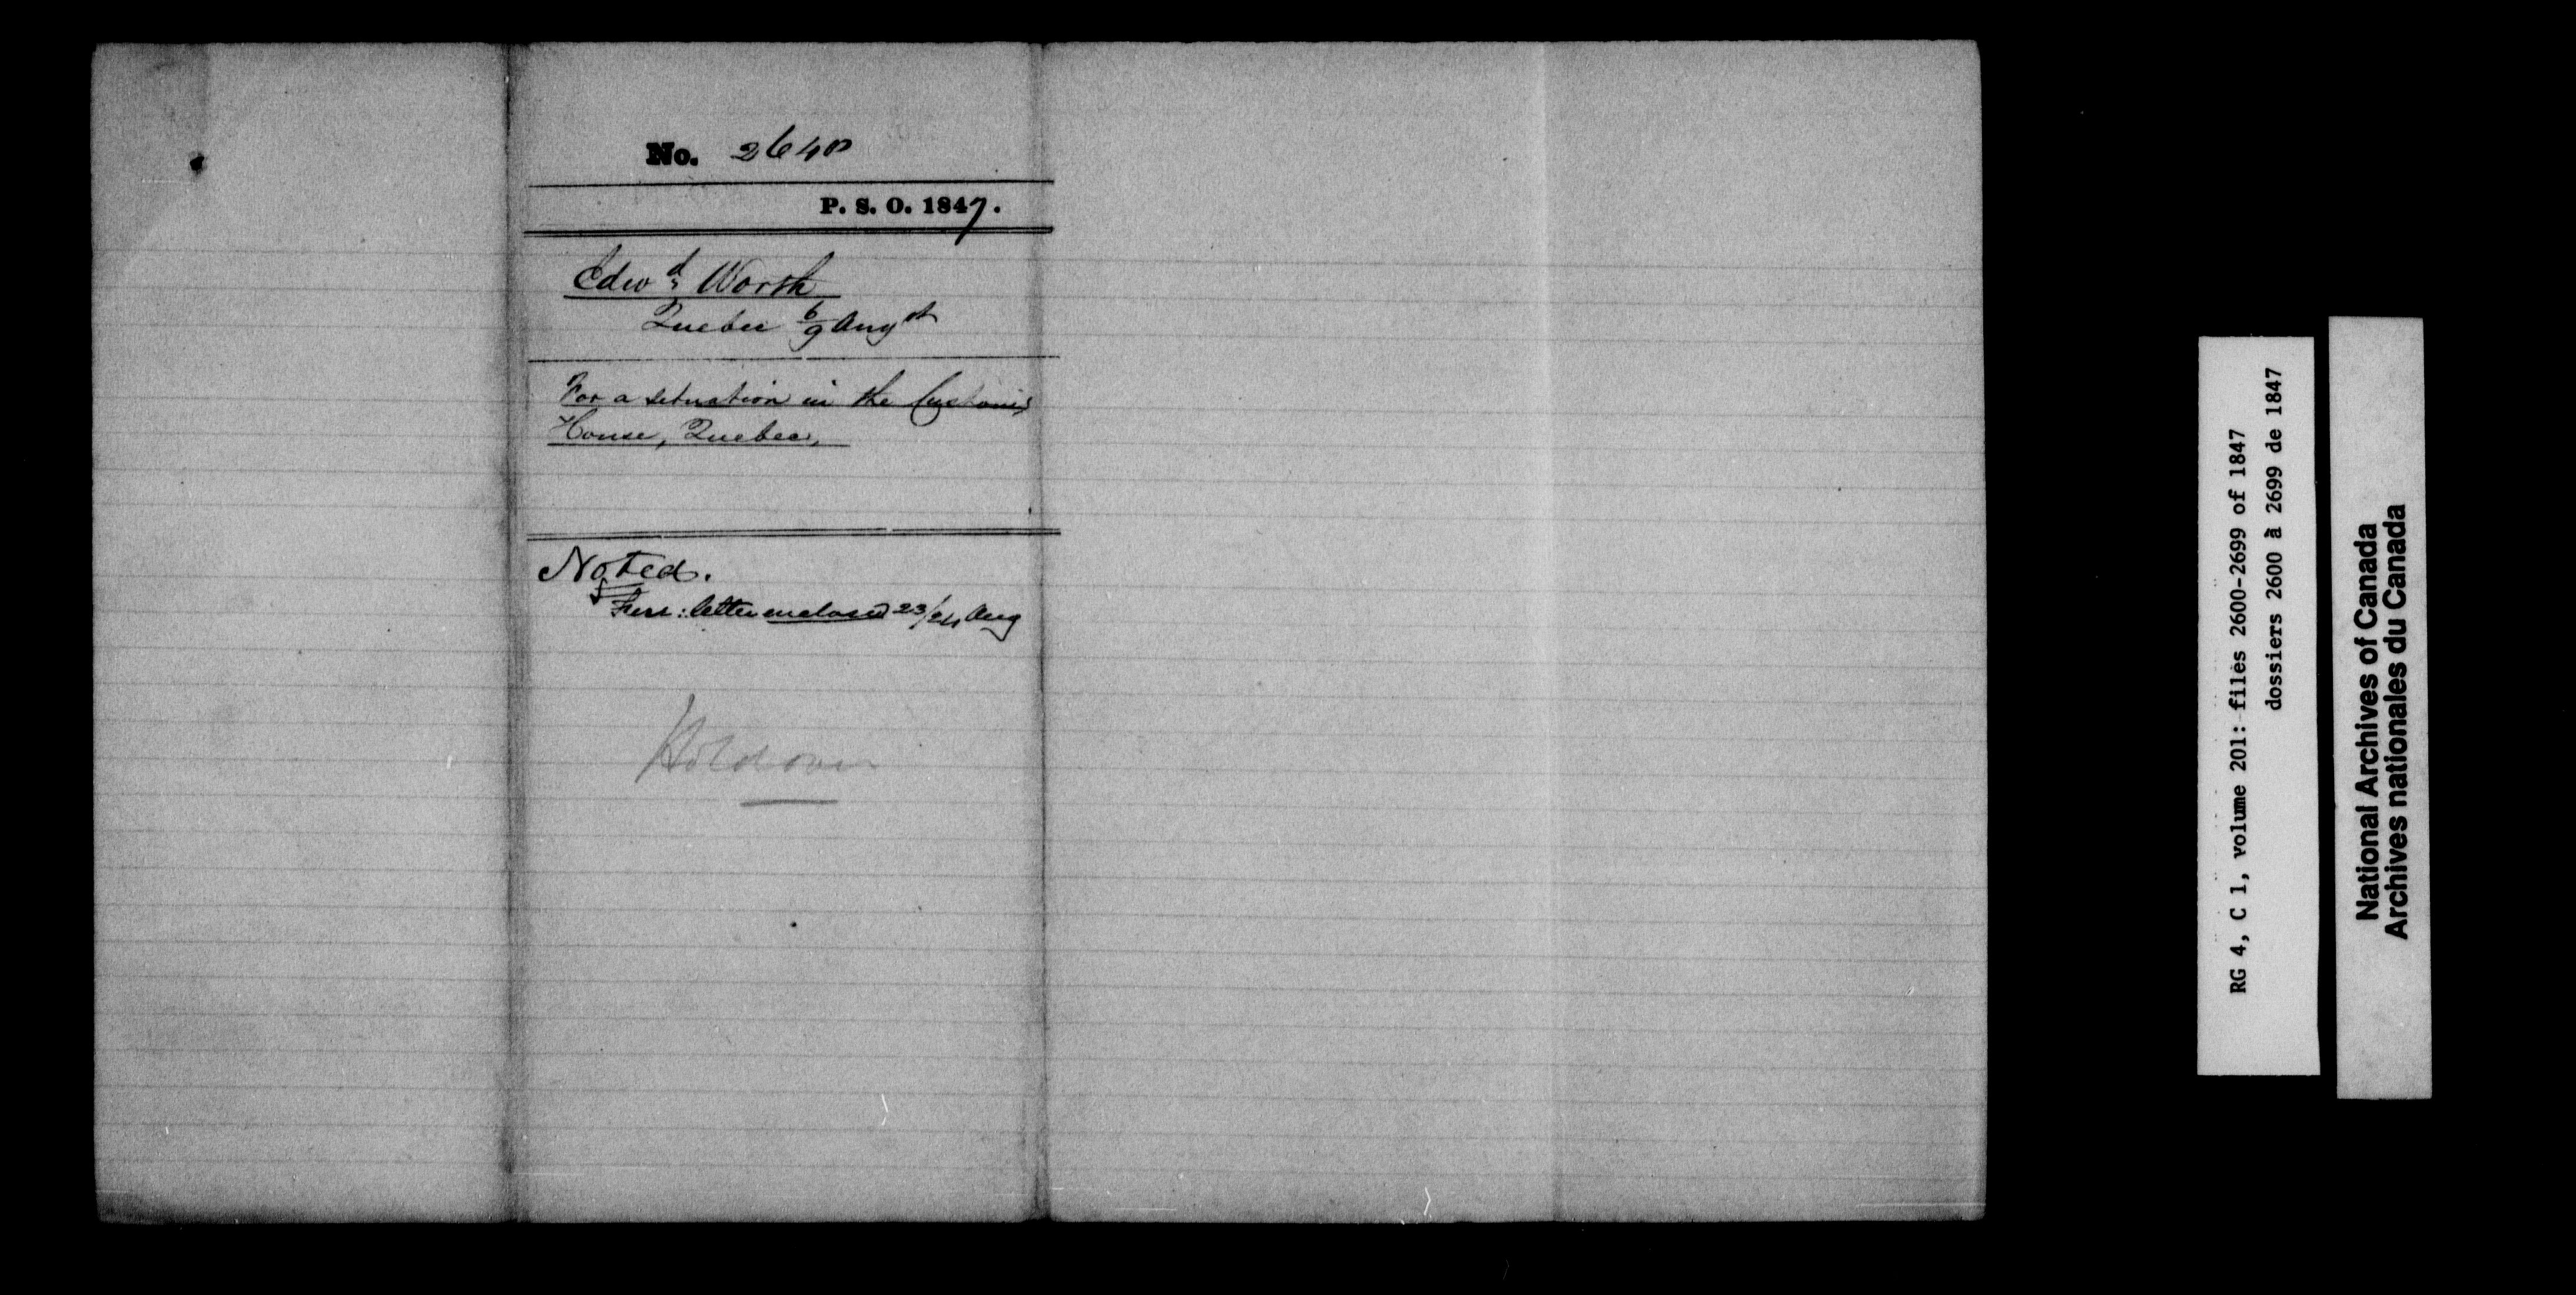 No. 2640
P. S. O. 1847.
Edwd Worth
Quebec 6/9 Augst
For a situation in the Customs
House, Quebec,
Noted.
letter enclosed 23/24 Aug
Hold over
RG 4, C 1, volume 201: files 2600-2699 of 1847
dossiers 2600 à 2699 de 1847
National Archives of Canada
Archives nationales du Canada